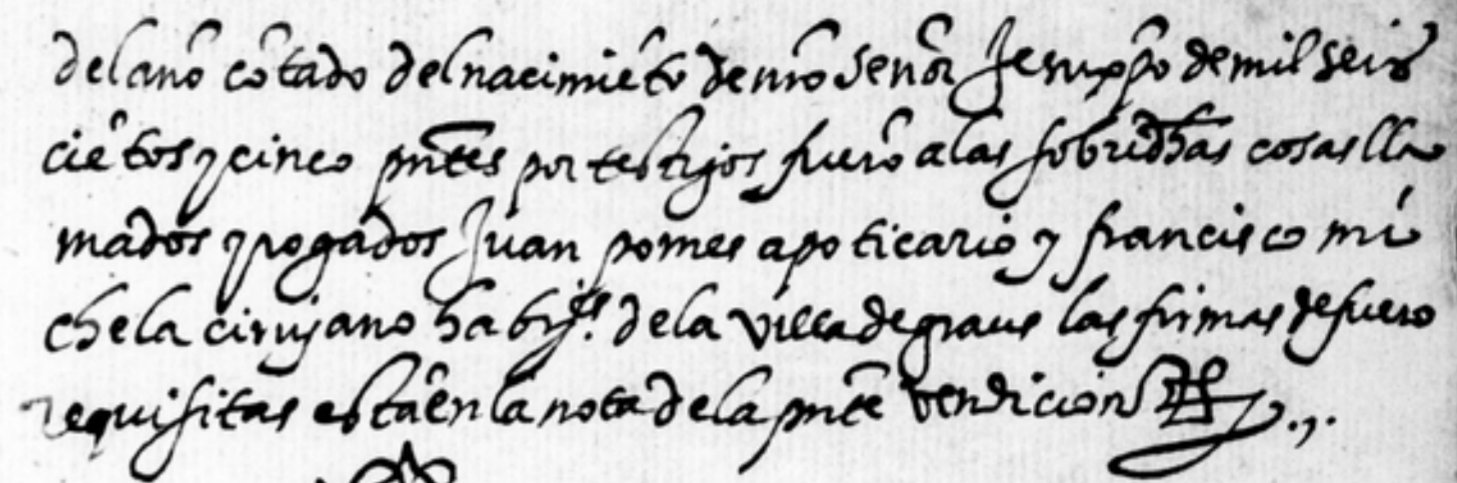 del año cõtado del nacimiẽto de nr̃o Señor Jesuxp̃o de mil seis
ciẽtos y cinco pñtes por testigos fuerõ a las sobred̃has cosas lla
mados y rogados Juan pomes apoticario y francisco mi
chela cirujano habit̃s. de la villa de graus las firmas de fuero
requisitas estã en la nota de la pñte vendicion